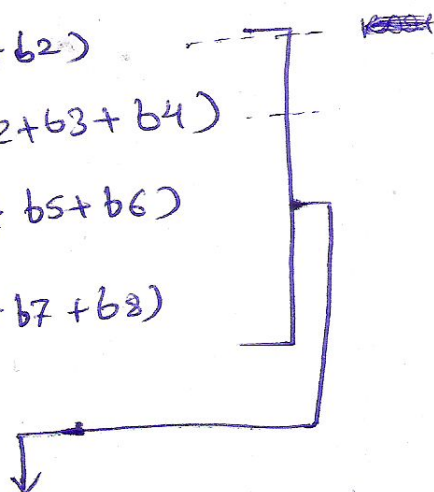 b2)
2+b3+b4)
b5+b6)
b7+b8)